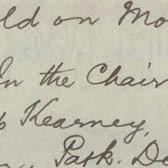 ld on Mo
In the Chair
Kearney,
Park. De